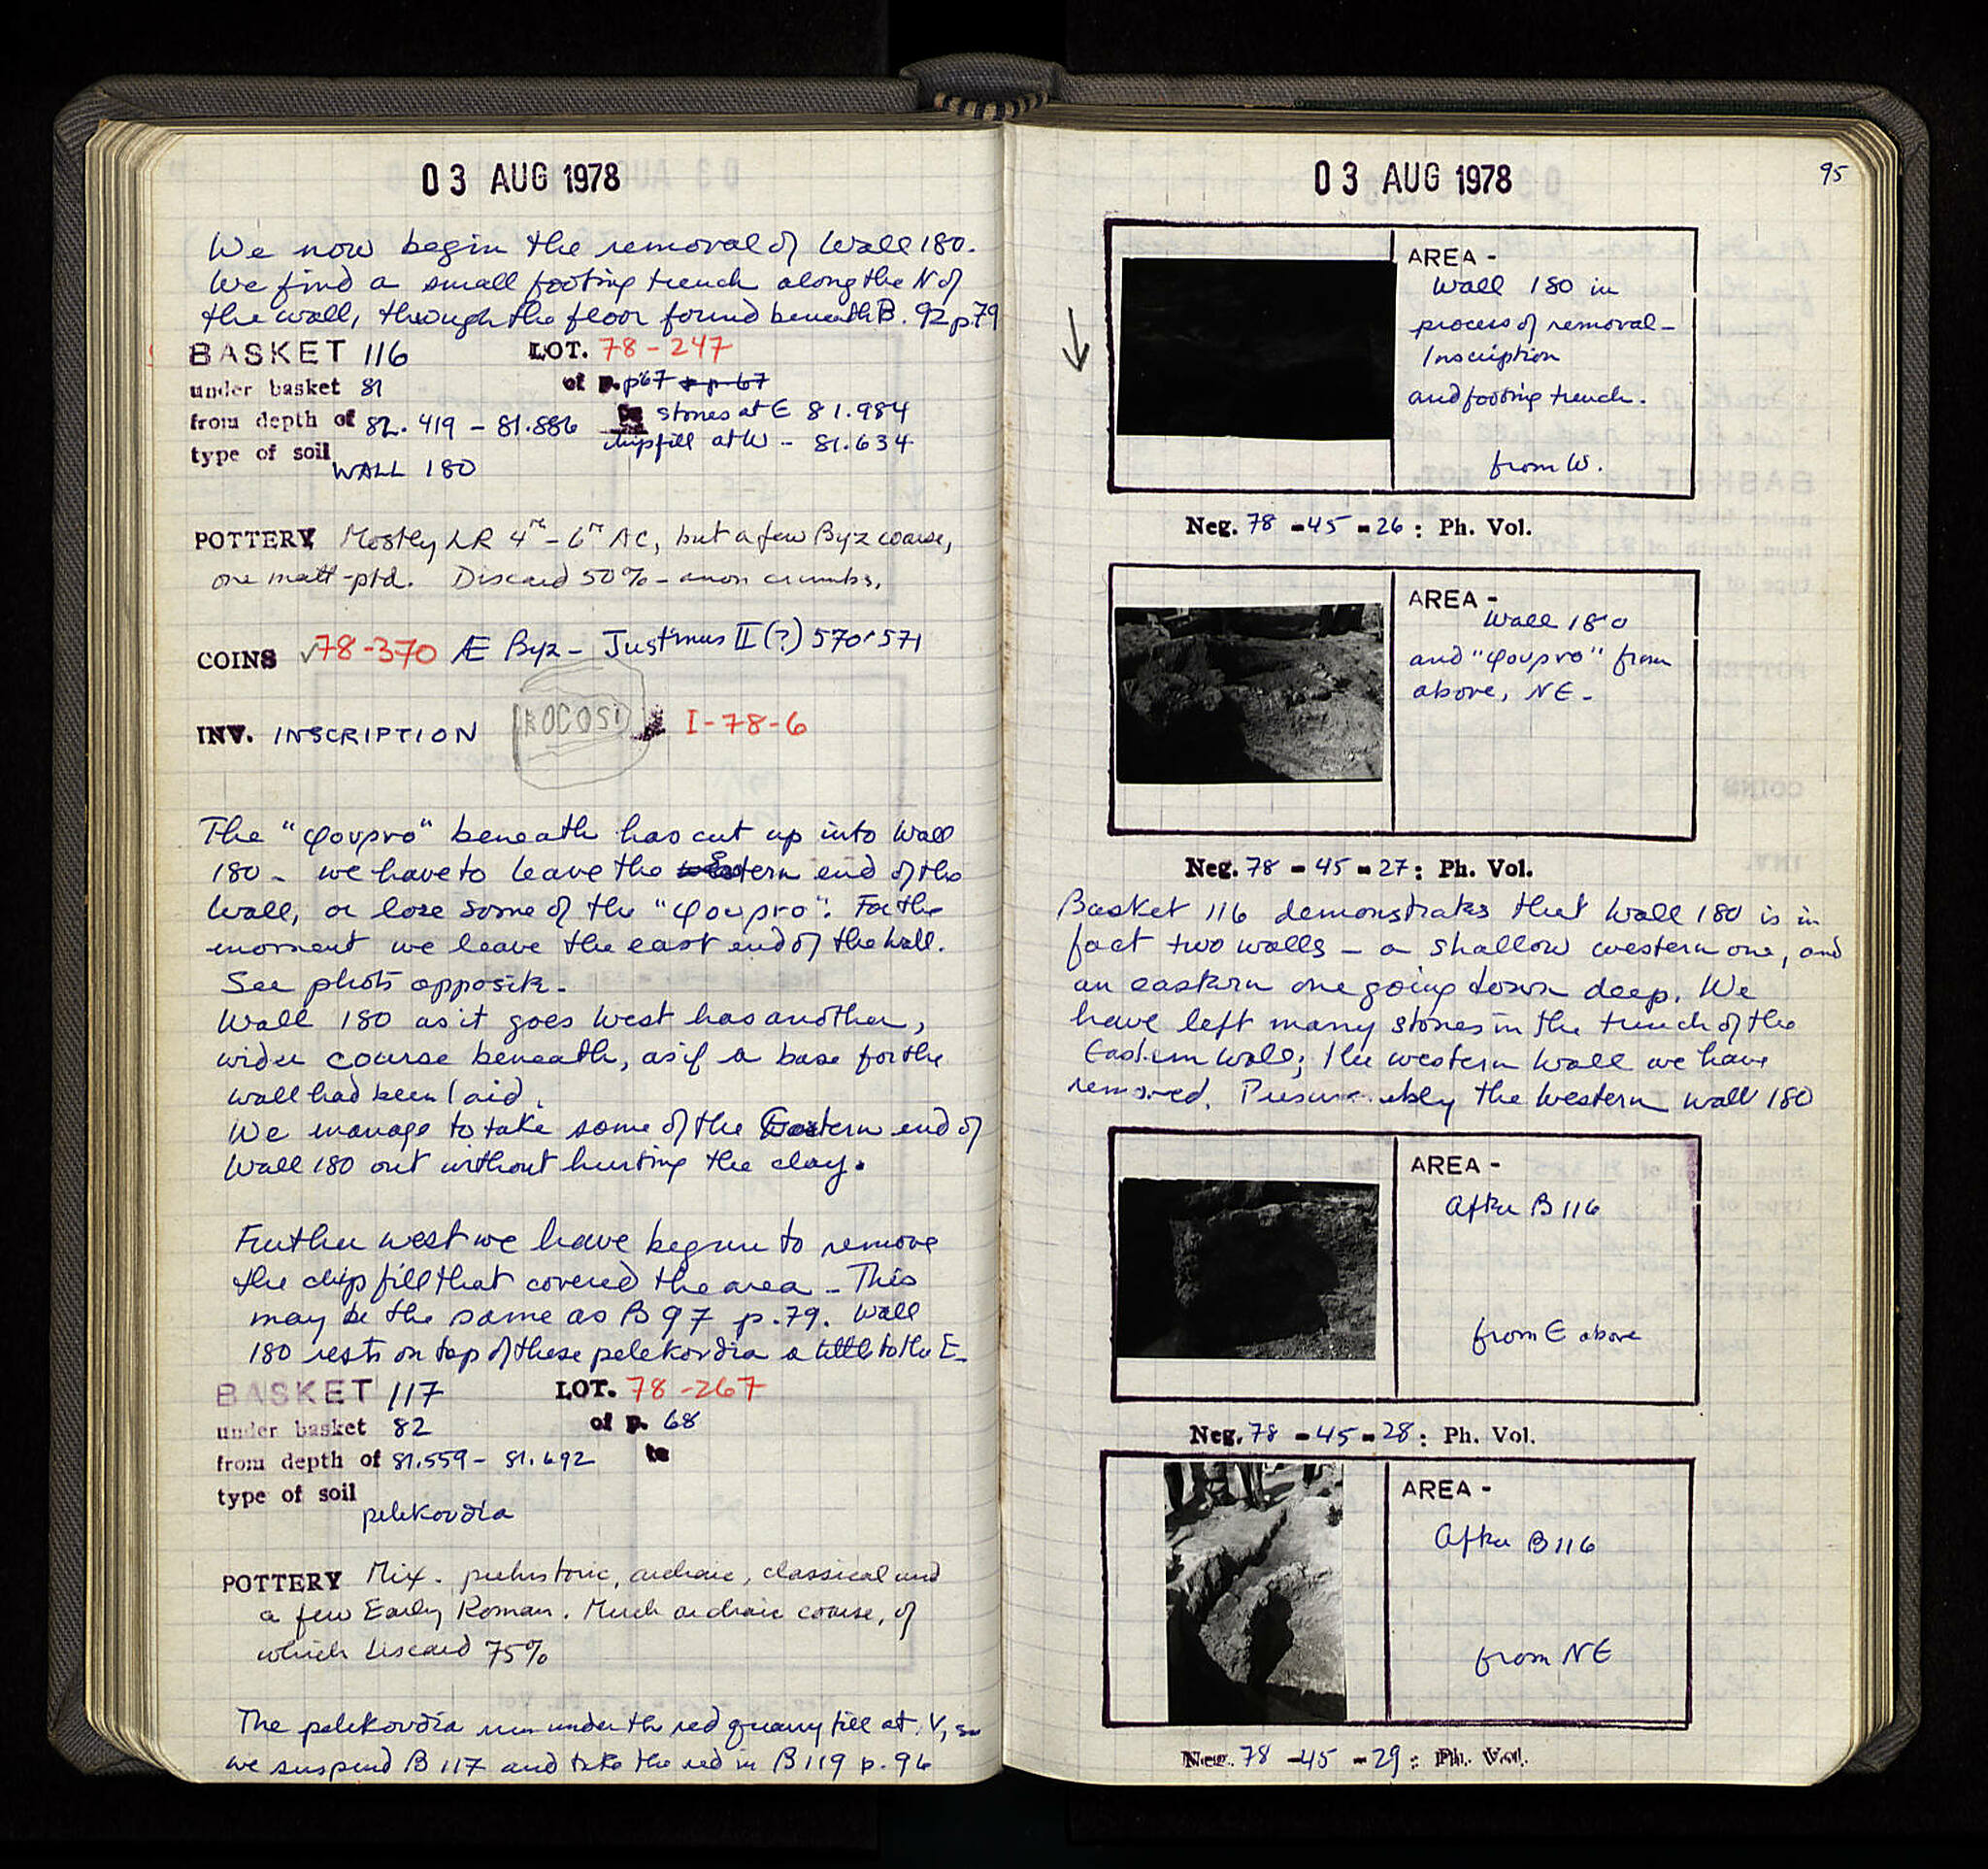 03 AUG 1978
We now begin the removal of Wall 180.
We find a small footing trench along the N of
the wall, through the floor found beneath B. 92 p.79
BASKET 116 LOT. 78-247
under basket 81 of p. p67
from depth of 82.419 - 81.886 stones at E 81.984
type of soil chip fill at W - 81.634
WALL 180
POTTERY Mostly LR 4th - 6th AC, but a few Byz coarse,
one matt-ptd. Discard 50% - anon crumbs.
COINS ✓78-370 Æ Byz - Justinus II (?) 570/571
INV. INSCRIPTION I-78-6
The "φουρνο" beneath has cut up into Wall
180 - we have to leave the Eastern end of the
Wall, or lose some of the "φουρνο". For the
moment we leave the east end of the Wall.
See photo opposite.
Wall 180 as it goes West has another,
wider course beneath, as if a base for the
wall had been laid.
We manage to take some of the Eastern end of
Wall 180 out without hurting the clay.
Further west we have begun to remove
the chip fill that covered the area - This
may be the same as B 97 p.79. Wall
180 rests on top of these pelekoudia a little to the E-
BASKET 117 LOT. 78-267
under basket 82 of p. 68
from depth of 81.559 - 81.492 to
type of soil
pelekoudia
POTTERY Mix. prehistoric, archaic, classical and
a few Early Roman. Much archaic coarse, of
which discard 75%
The pelekoudia run under the red quarry fill at V, so
we suspend B 117 and take the red in B 119 p. 96
03 AUG 1978
95
AREA -
Wall 180 in
process of removal -
Inscription
and footing trench.
from W.
Neg. 78-45-26: Ph. Vol.
AREA -
Wall 180
and "φουρνο" from
above, NE -
Neg. 78-45-27: Ph. Vol.
Basket 116 demonstrates that Wall 180 is in
fact two walls - a shallow western one, and
an eastern one going down deep. We
have left many stones in the trench of the
Eastern Wall; the western wall we have
removed. Presumably the Western wall 180
AREA -
After B 116
from E above
Neg. 78-45-28: Ph. Vol.
AREA -
After B 116
from NE
Neg. 78-45-29: Ph. Vol.